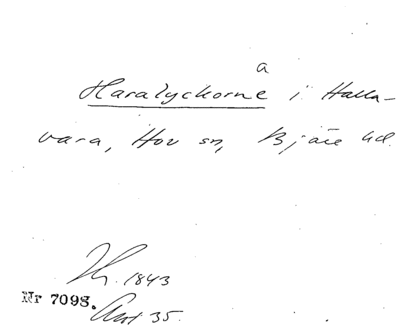 a
Haralyckorne i Halla-
vara, Hov sn, Bjäre hd.
1843
Nr 7098. Akt 35.